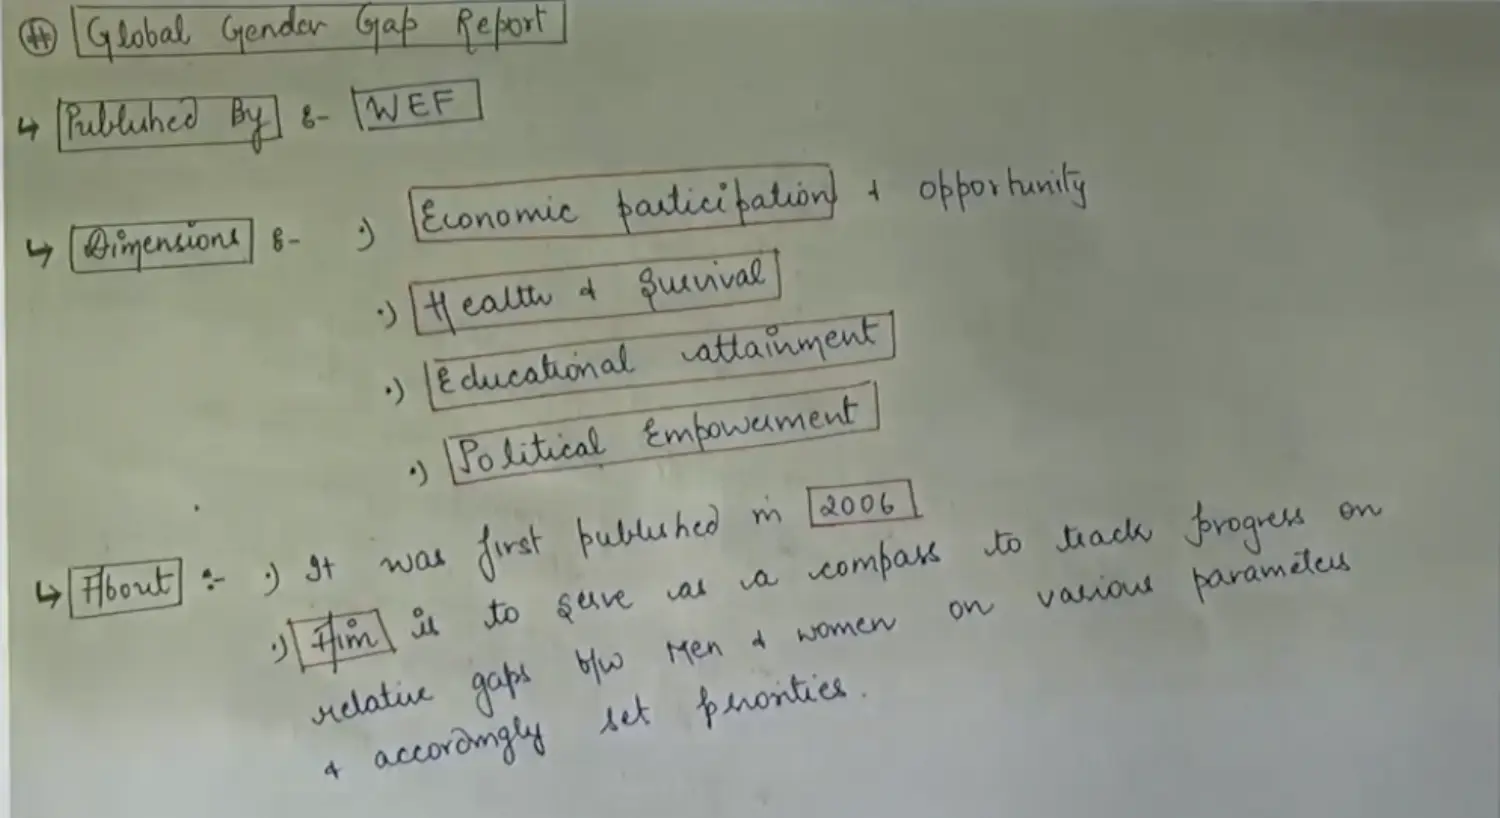 # Global Gender Gap Report
↳ Published By :- WEF
↳ Dimensions :- •) Economic participation & opportunity
•) Health & Survival
•) Educational attainment
•) Political Empowerment
↳ About :- •) It was first published in 2006
•) Aim is to serve as a compass to track progress on
relative gaps b/w Men & women on various parameters
& accordingly set priorities.